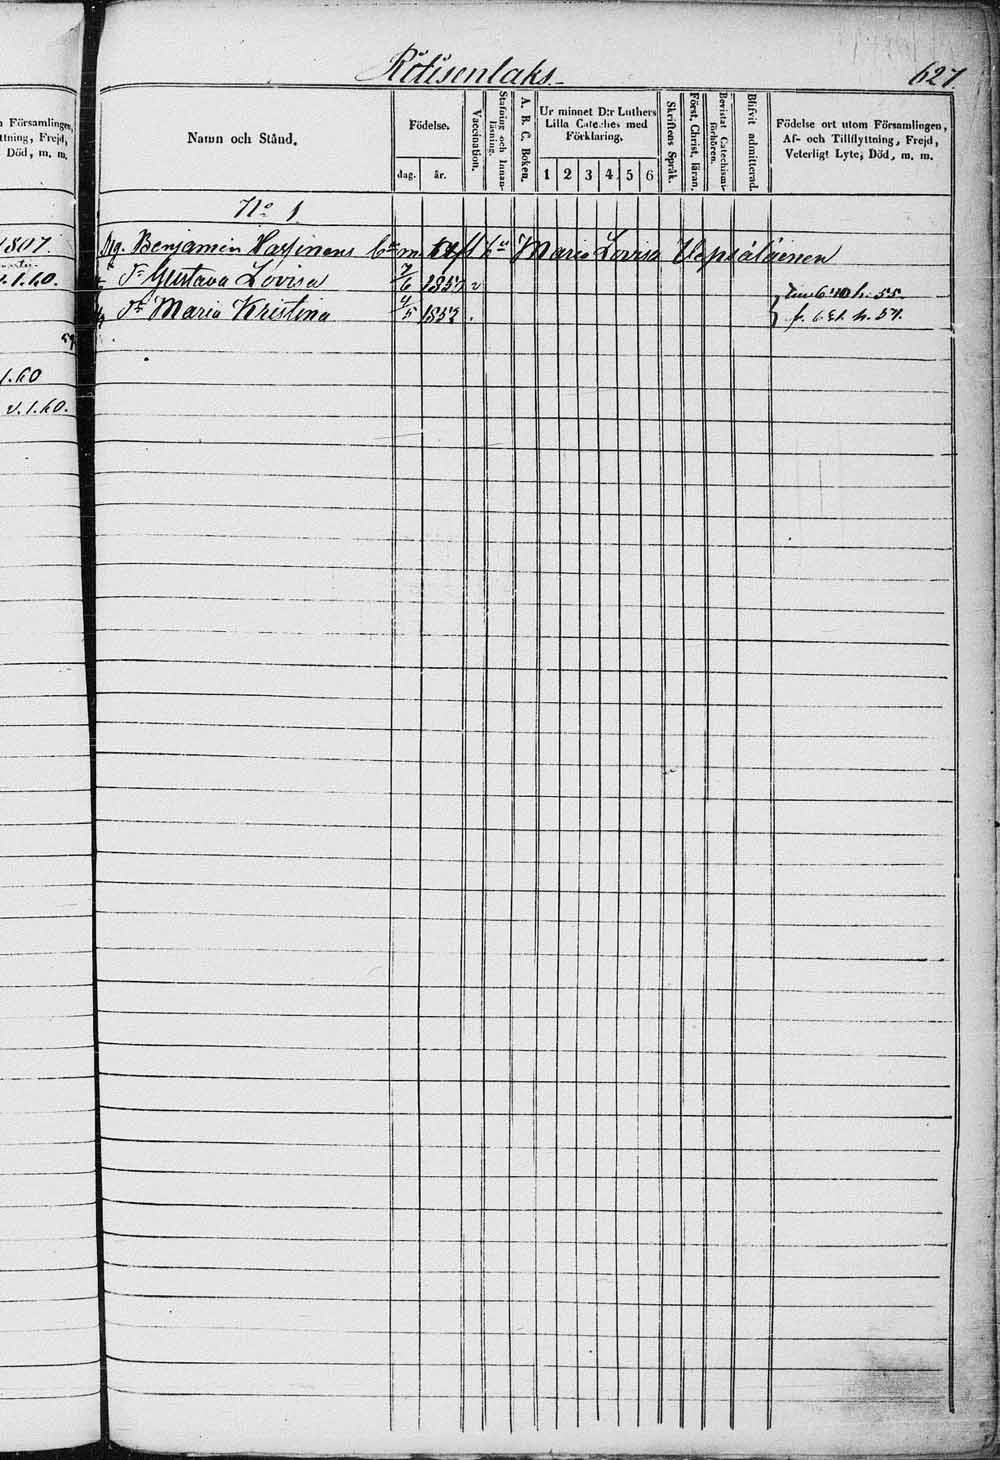 Rötisenlaks
627.
Församlingen,
ttning, Frejd,
Död, m. m.
1807.
1.60.
1.60
v. 1.60.
Namn och Stånd.
Födelse.
dag.
år.
Vaccination.
Stafning och Innanläsning.
A. B. C. Boken.
Ur minnet D:r Luthers
Lilla Catеches med
Förklaring.
1 2 3 4 5 6
Skriftens Språk.
Först. Christ. läran.
Bevistat Catechismi-förhören.
Blifvit admitterad.
Födelse ort utom Församlingen,
Af- och Tillflyttning, Frejd,
Veterligt Lyte, Död, m. m.
No 1
Benjamin Maria Lovisa
Gustava Lovisa 7/6 1857 v
Maria Kristina 4/5 1852 h. 57.